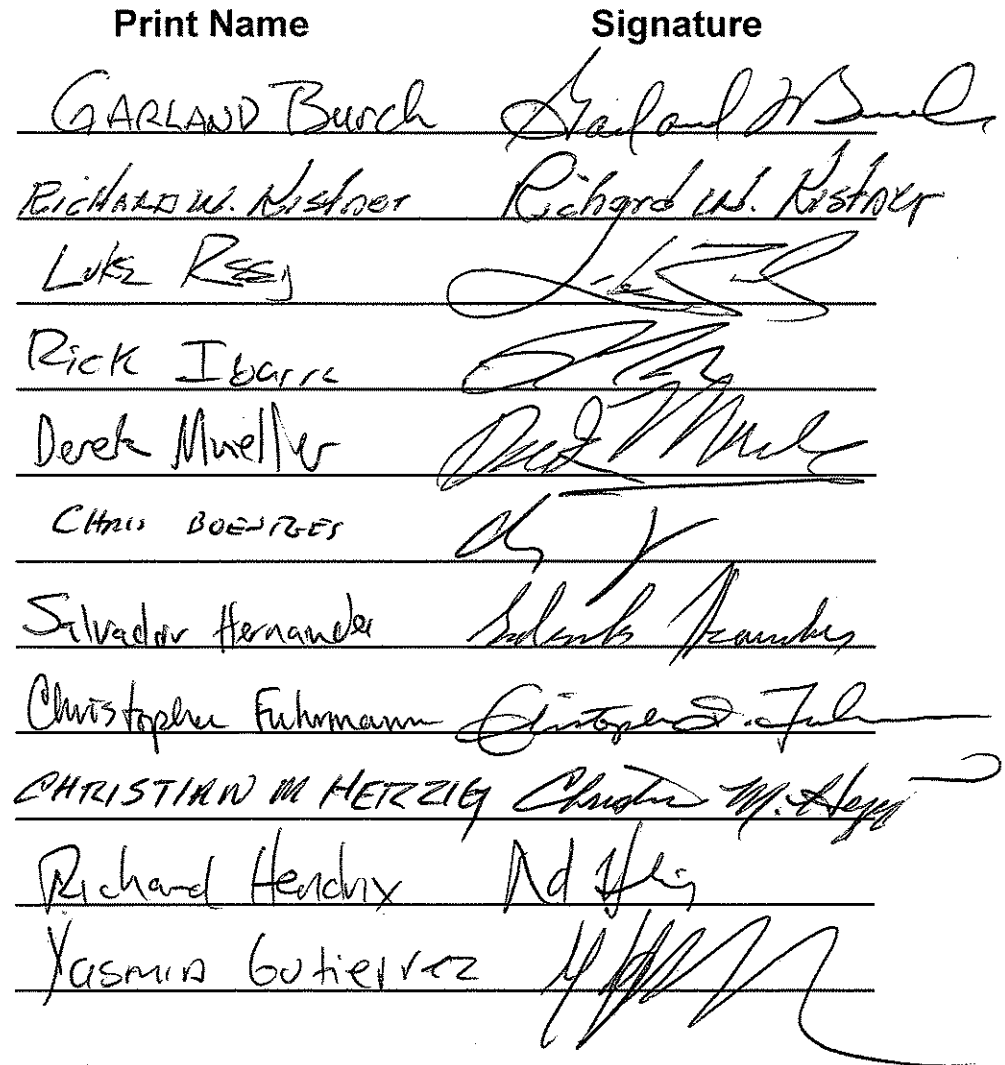 Print Name Signature
GARLAND Burch Garland W Burch
RICHARD W. Kistner Richard W. Kistner
Luke
Rick Ibarra
Derek Mueller Derek Mueller
CHRIS BOENTGES
Salvador Hernandez Salvador Hernandez
Christopher Fuhrmann Christopher D. Fuhrmann
CHRISTIAN M HERZIG Christian M. Herzig
Richard Hendrix
Yasmin Gutierrez